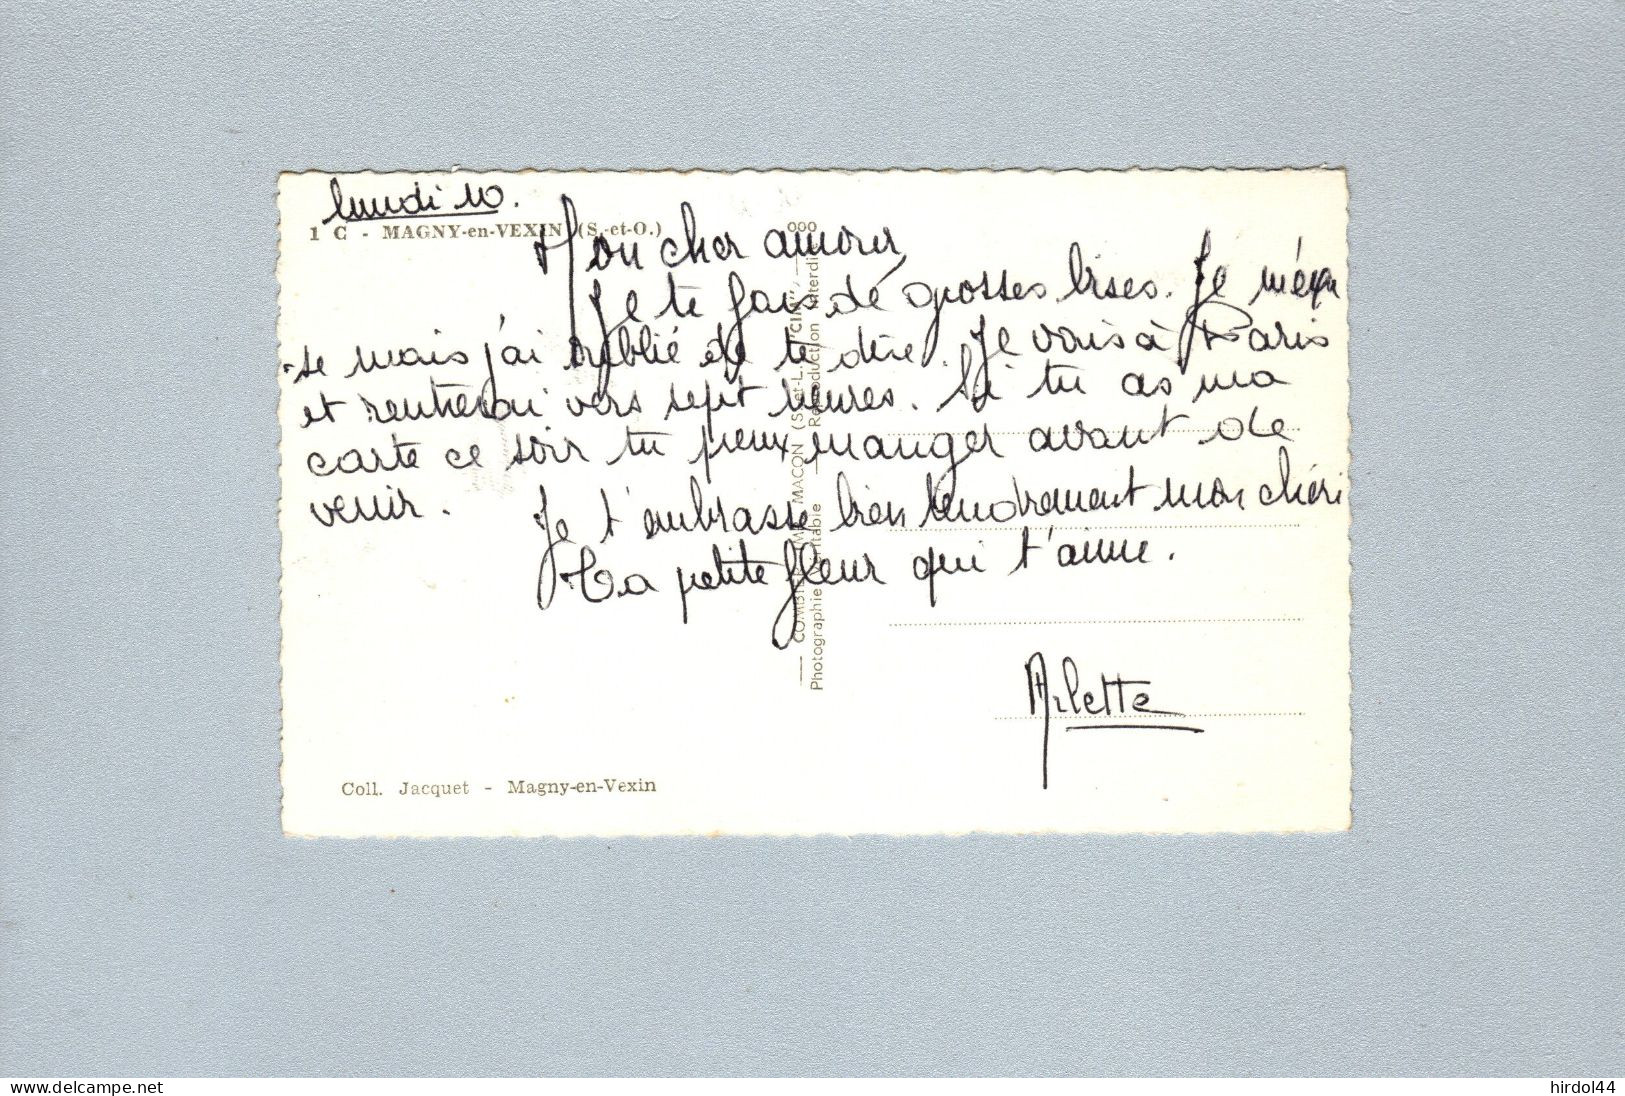 lundi 10.
1 C - MAGNY-en-VEXIN (S.-et-O.)
Mon cher amour,
Je te fais de grosses bises. Je m'excu
-se mais j'ai oublié de te dire. Je vais à Paris
et rentrerai vers sept heures. Si tu as ma
carte ce soir tu peux manger avant de
venir.
Je t'embrasse bien tendrement mon chéri
Ta petite fleur qui t'aime.
Arlette
COMBIER MACON (S.-et-L.) "CIM"
Photographie Véritable — Reproduction Interdite
Coll. Jacquet - Magny-en-Vexin
www.delcampe.net
hirdol44